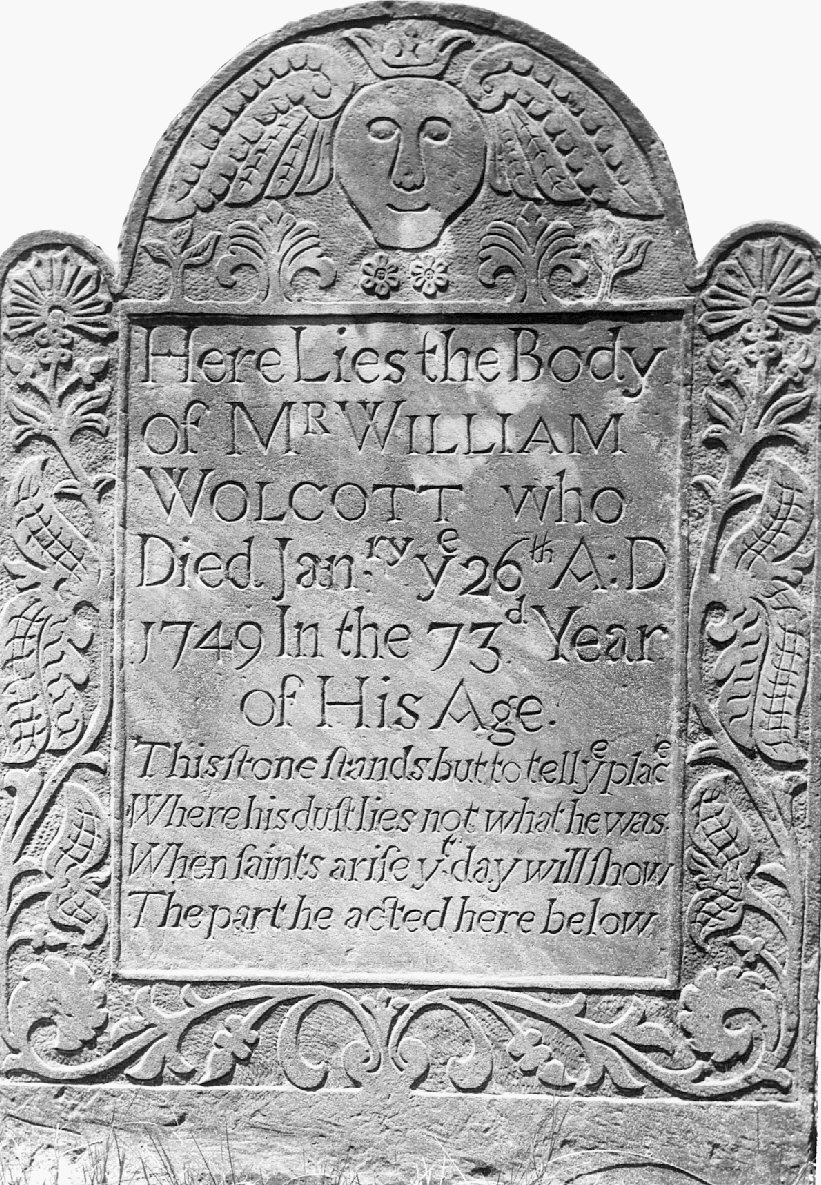 Here Lies the Body
of Mʀ WILLIAM
WOLCOTT who
Died Janʳʸ yᵉ 26ᵗʰ A:D
1749 In the 73ᵈ Year
of His Age.
This ſtone stands but to tell yᵉ placᵉ
Where his duſt lies not what he was
When ſaints ariſe yᵗ day will ſhow
The part he acted here below